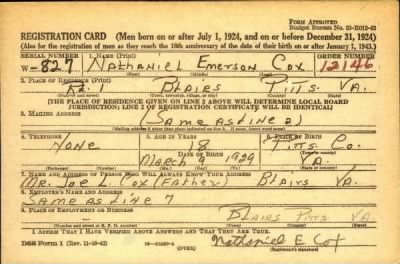 FORM APPROVED
Budget Bureau No. 33-R012-42
REGISTRATION CARD (Men born on or after July 1, 1924, and on or before December 31, 1924)
(Also for the registration of men as they reach the 18th anniversary of the date of their birth on or after January 1, 1943.)
SERIAL NUMBER 1. NAME (Print) ORDER NUMBER
W-827 Nathaniel Emerson Cox 12146
(First) (Middle) (Last)
2. PLACE OF RESIDENCE (Print)
Rt. 1 Blairs Pitts VA.
(Town, township, village, or city) (County) (State)
[THE PLACE OF RESIDENCE GIVEN ON LINE 2 ABOVE WILL DETERMINE LOCAL BOARD
JURISDICTION; LINE 2 OF REGISTRATION CERTIFICATE WILL BE IDENTICAL]
3. MAILING ADDRESS
(Same as line 2)
4. TELEPHONE 5. AGE IN YEARS 6. PLACE OF BIRTH
None 18 Pitts Co.
DATE OF BIRTH
March 9 1929 VA.
7. NAME AND ADDRESS OF PERSON WHO WILL ALWAYS KNOW YOUR ADDRESS
Mr. Joe L. Cox (Father) Blairs VA.
8. EMPLOYER'S NAME AND ADDRESS
Same as Line 7
9. PLACE OF EMPLOYMENT OR BUSINESS
Blairs Pitts VA.
I AFFIRM THAT I HAVE VERIFIED ABOVE ANSWERS AND THAT THEY ARE TRUE.
DSS Form 1 (OVER) Nathaniel E Cox